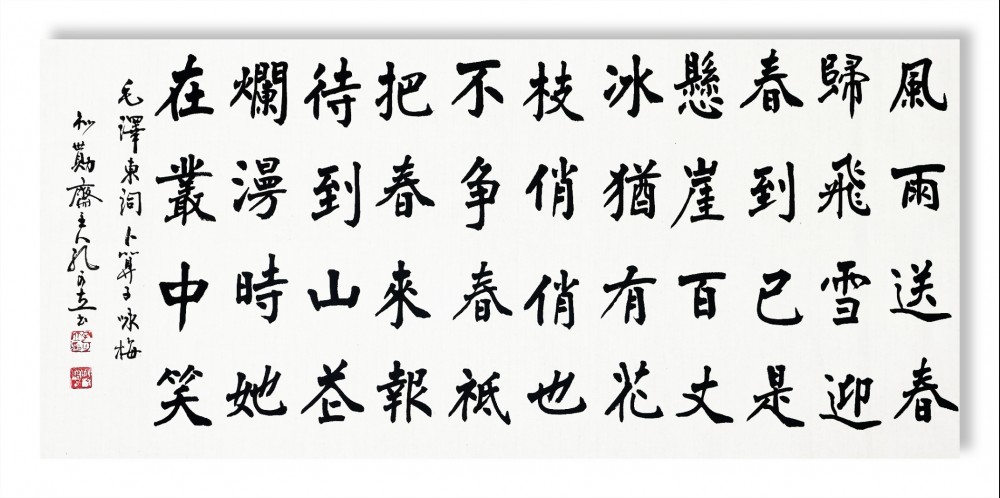 風雨送春
歸飛雪迎
春到已是
懸崖百丈
冰猶有花
枝俏俏也
不争春祗
把春來報
待到山芲
爛漫時她
在叢中笑
毛澤東詞卜算子咏梅
齋主人孔可立书